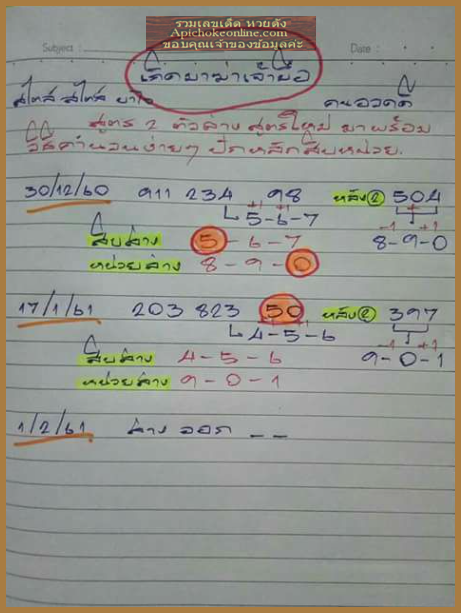 รวมเลขเด็ด หวยดัง
Apichokeonline.com
ขอบคุณเจ้าของข้อมูลค่ะ
Subject : Date :
สไตล์ สไตล์ คนอวดดี
สูตร 2 ตัวล่าง สูตรใหม่ มาพร้อม
วิธีคำนวนง่ายๆ ปักหลักสิบหน่วย.
30/12/60 911 234 98 หลัง② 504
5-6-7 -1 +1
สิบล่าง 5-6-7 8-9-0
หน่วยล่าง 8-9-0
17/1/61 203 823 50 หลัง② 397
4-5-6 -1 +1
สิบล่าง 4-5-6 9-0-1
หน่วยล่าง 9-0-1
1/2/61 ล่าง ออก _ _